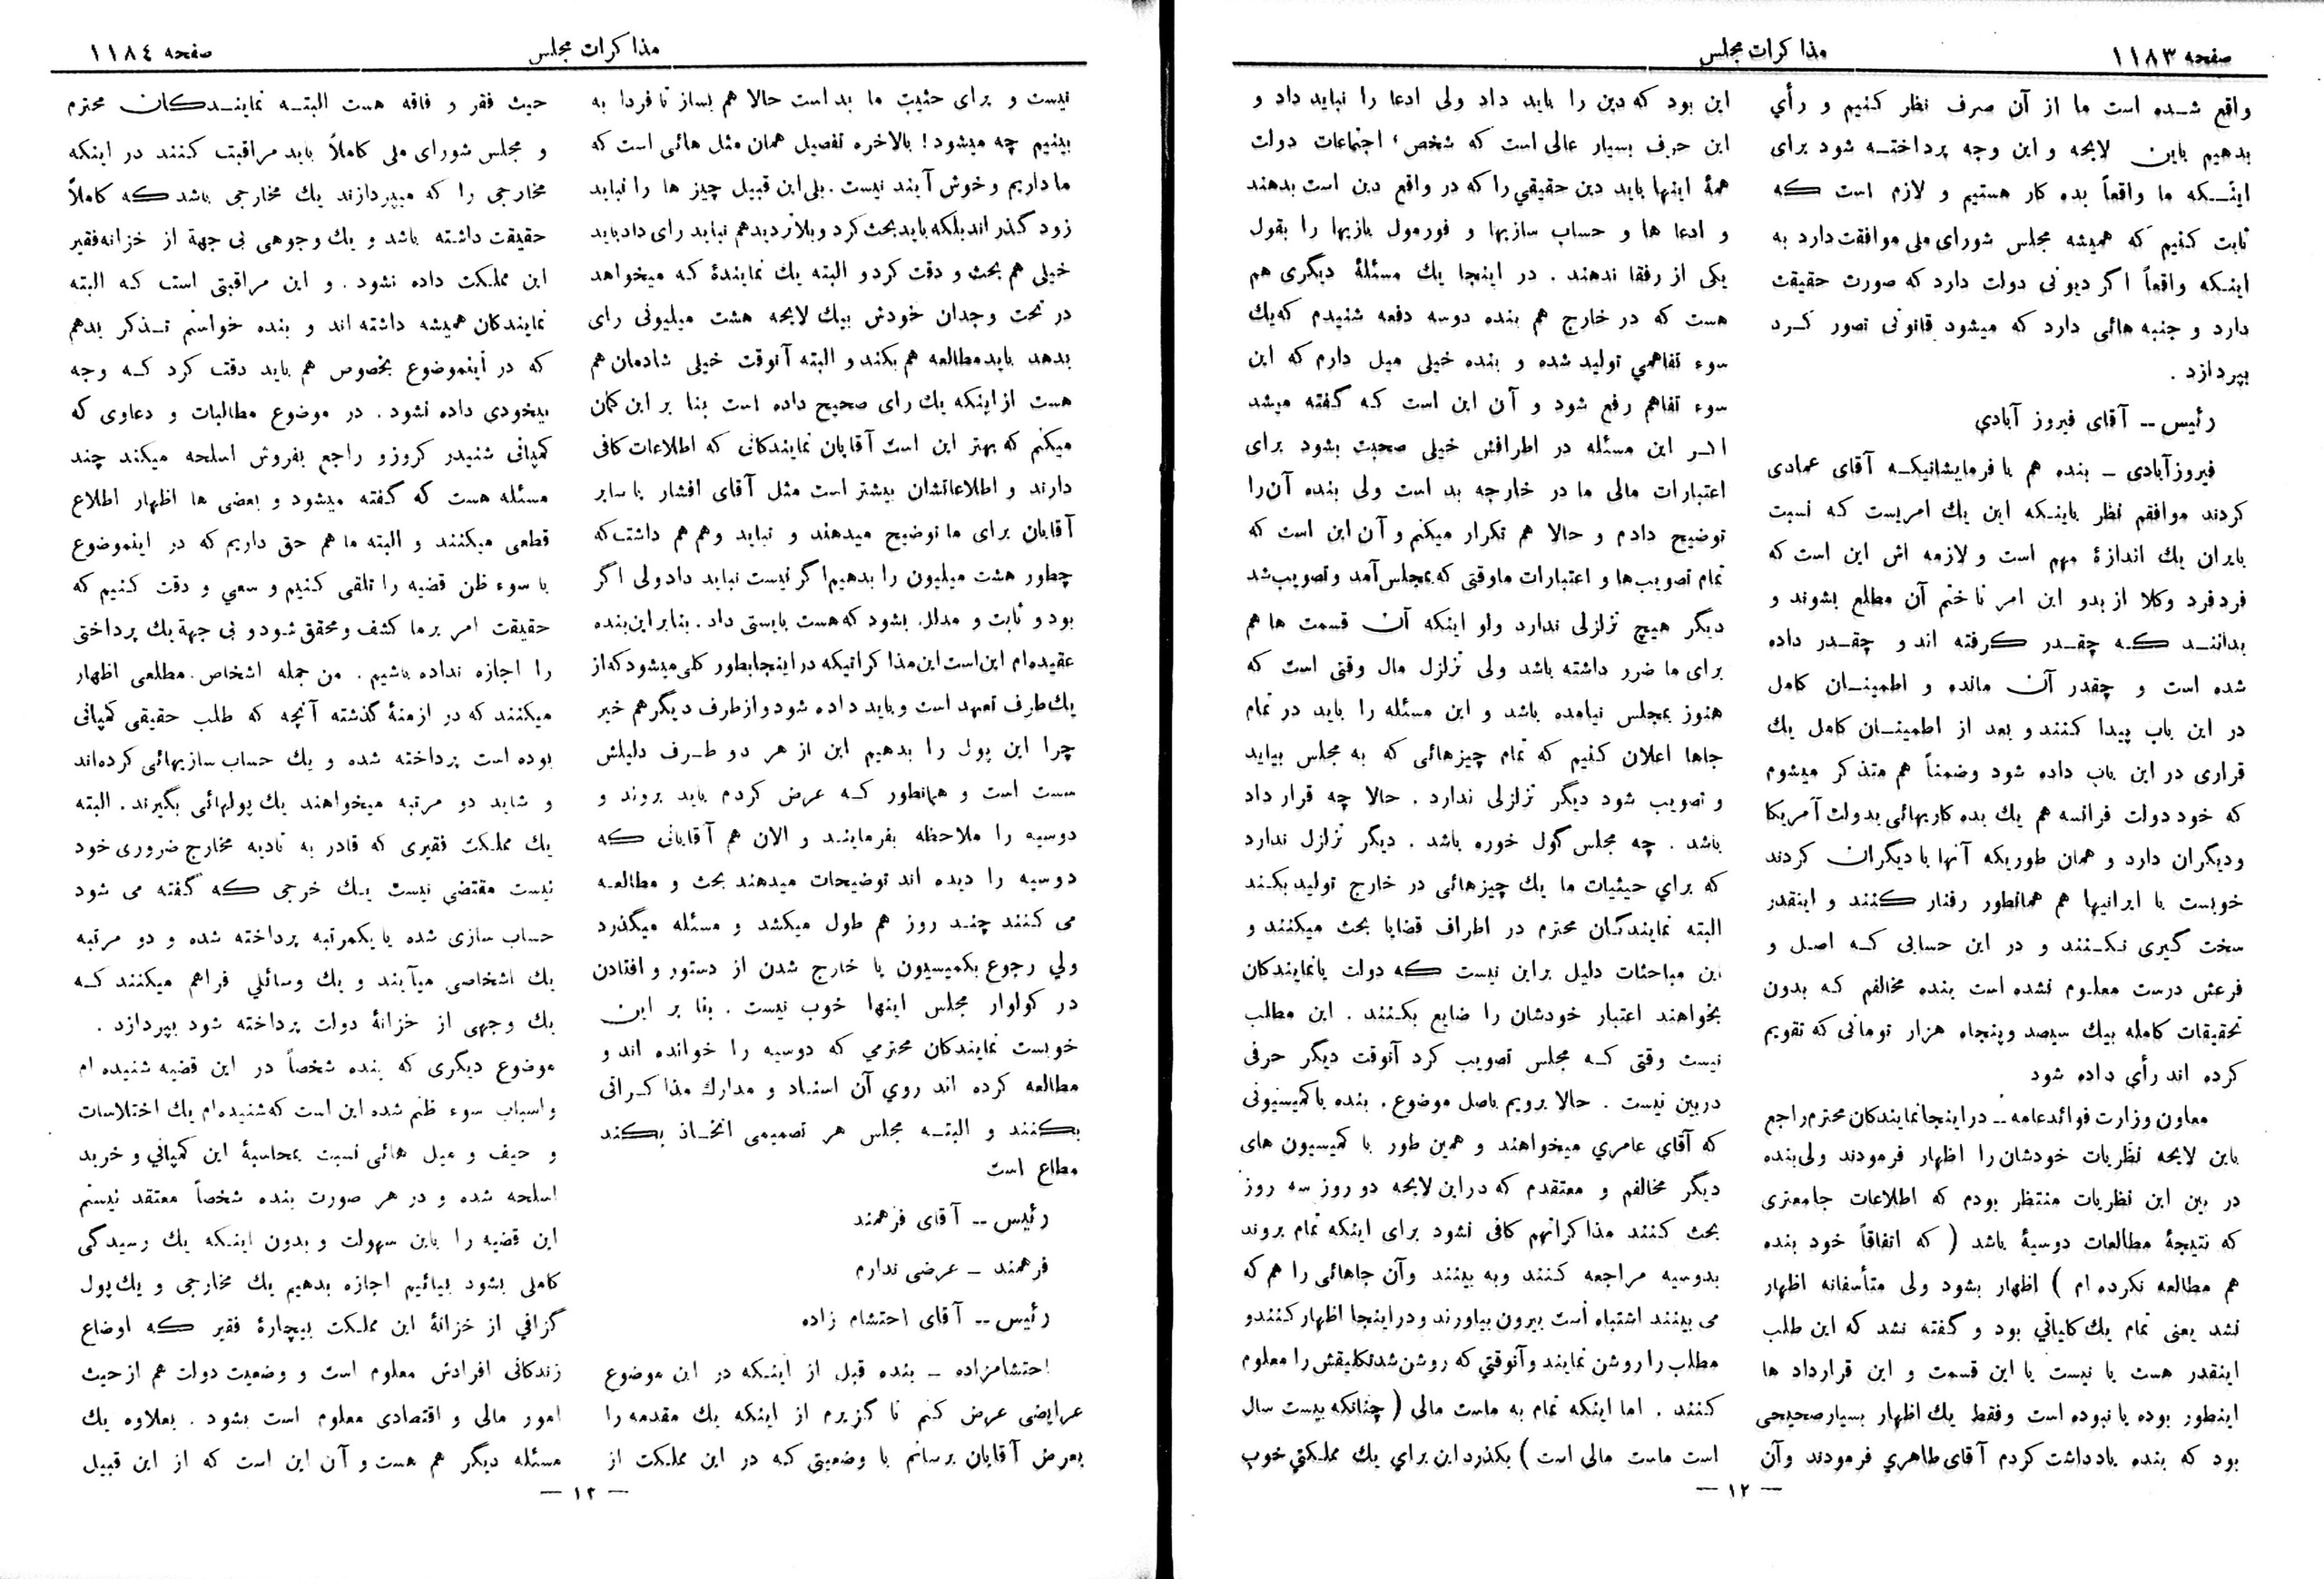 صفحه ۱۱۸۳
مذاکرات مجلس
واقع شده است ما از آن صرف نظر کنیم و رأی
بدهیم باین لایحه و این وجه پرداخته شود برای
اینکه ما واقعاً بده کار هستیم و لازم است که
ثابت کنیم که همیشه مجلس شورای ملی موافقت دارد به
اینکه واقعاً اگر دیونی دولت دارد که صورت حقیقت
دارد و جنبه هائی دارد که میشود قانونی تصور کرد
بپردازد .
رئیس -- آقای فیروز آبادی
فیروزآبادی - بنده هم با فرمایشاتیکه آقای عمادی
کردند موافقم نظر باینکه این یك امریست که نسبت
بایران یك اندازۀ مهم است و لازمه اش این است که
فردفرد وکلا از بدو این امر تا ختم آن مطلع بشوند و
بدانند که چقدر گرفته اند و چقدر داده
شده است و چقدر آن مانده و اطمینان کامل
در این باب پیدا کنند و بعد از اطمینان کامل یك
قراری در این باب داده شود وضمناً هم متذکر میشوم
که خود دولت فرانسه هم یك بده کاریهائی بدولت آمریکا
ودیگران دارد و همان طوریکه آنها با دیگران کردند
خوبست با ایرانیها هم همانطور رفتار کنند و اینقدر
سخت گیری نکنند و در این حسابی که اصل و
فرعش درست معلوم نشده است بنده مخالفم که بدون
تحقیقات کامله بیك سیصد وپنجاه هزار تومانی که تقویم
کرده اند رأی داده شود
معاون وزارت فوائدعامه -- در اینجا نمایندگان محترم راجع
باین لایحه نظریات خودشان را اظهار فرمودند ولی بنده
در بین این نظریات منتظر بودم که اطلاعات جامعتری
که نتیجۀ مطالعات دوسیۀ باشد ( که اتفاقاً خود بنده
هم مطالعه نکرده ام ) اظهار بشود ولی متأسفانه اظهار
نشد یعنی تمام یك کلیاتی بود و گفته نشد که این طلب
اینقدر هست یا نیست یا این قسمت و این قرارداد ها
اینطور بوده یا نبوده است وفقط یك اظهار بسیار صحیحی
بود که بنده یادداشت کردم آقای طاهری فرمودند وآن
این بود که دین را باید داد ولی ادعا را نباید داد و
این حرف بسیار عالی است که شخص، اجتماعات دولت
همۀ اینها باید دین حقیقی را که در واقع دین است بدهند
و ادعا ها و حساب سازیها و فورمول بازیها را بقول
یکی از رفقا ندهند . در اینجا یك مسئلۀ دیگری هم
هست که در خارج هم بنده دوسه دفعه شنیدم که یك
سوء تفاهمی تولید شده و بنده خیلی میل دارم که این
سوء تفاهم رفع شود و آن این است که گفته میشد
اگر این مسئله در اطرافش خیلی صحبت بشود برای
اعتبارات مالی ما در خارجه بد است ولی بنده آن را
توضیح دادم و حالا هم تکرار میکنم و آن این است که
تمام تصویب ها و اعتبارات ما وقتی که بمجلس آمد و تصویب شد
دیگر هیچ تزلزلی ندارد ولو اینکه آن قسمت ها هم
برای ما ضرر داشته باشد ولی تزلزل مال وقتی است که
هنوز بمجلس نیامده باشد و این مسئله را باید در تمام
جاها اعلان کنیم که تمام چیزهائی که به مجلس بیاید
و تصویب شود دیگر تزلزلی ندارد . حالا چه قرار داد
باشد . چه مجلس گول خوره باشد . دیگر تزلزل ندارد
که برای حیثیات ما یك چیزهائی در خارج تولید بکند
البته نمایندگان محترم در اطراف قضایا بحث میکنند و
این مباحثات دلیل براین نیست که دولت یا نمایندگان
بخواهند اعتبار خودشان را ضایع بکنند . این مطلب
نیست وقتی که مجلس تصویب کرد آنوقت دیگر حرفی
دربین نیست . حالا برویم باصل موضوع . بنده با کمیسیونی
که آقای عامری میخواهند و همین طور با کمیسیون های
دیگر مخالفم و معتقدم که دراین لایحه دو روز سه روز
بحث کنند مذاکراتهم کافی نشود برای اینکه تمام بروند
بدوسیه مراجعه کنند وبه بینند وآن جاهائی را هم که
می بینند اشتباه است بیرون بیاورند ودر اینجا اظهار کنند و
مطلب را روشن نمایند و آنوقتی که روشن شد تکلیفش را معلوم
کنند . اما اینکه تمام به ماست مالی ( چنانکه بیست سال
است ماست مالی است ) بگذرد این برای یك مملکتی خوب
— ۱۲ —
صفحه ۱۱۸٤
مذاکرات مجلس
نیست و برای حثیت ما بد است حالا هم بساز تا فردا به
بینیم چه میشود! بالاخره تفصیل همان مثل هائی است که
ما داریم و خوش آیند نیست . بلی این قبیل چیز ها را نباید
زود گذراند بلکه باید بحث کرد و بلاتردید هم نباید رای داد باید
خیلی هم بحث و دقت کرد و البته یك نمایندۀ که میخواهد
در تحت وجدان خودش بیك لایحه هشت میلیونی رای
بدهد باید مطالعه هم بکند و البته آنوقت خیلی شادمان هم
هست از اینکه یك رای صحیح داده است بنا بر این گمان
میکنم که بهتر این است آقایان نمایندگانی که اطلاعات کافی
دارند و اطلاعاتشان بیشتر است مثل آقای افشار یا سایر
آقایان برای ما توضیح میدهند و نباید وهم هم داشت که
چطور هشت میلیون را بدهیم اگر نیست نباید داد ولی اگر
بود و ثابت و مدلل بشود که هست بایستی داد . بنابر این بنده
عقیده ام این است این مذاکراتیکه در اینجا بطور کلی میشود که از
یك طرف تعهد است و باید داده شود و از طرف دیگر هم خیر
چرا این پول را بدهیم این از هر دو طرف دلیلش
سست است و همانطور که عرض کردم باید بروند و
دوسیه را ملاحظه بفرمایند و الان هم آقایانی که
دوسیه را دیده اند توضیحات میدهند بحث و مطالعه
می کنند چند روز هم طول میکشد و مسئله میگذرد
ولی رجوع بکمیسیون یا خارج شدن از دستور و افتادن
در کولوار مجلس اینها خوب نیست . بنا بر این
خوبست نمایندگان محترمی که دوسیه را خوانده اند و
مطالعه کرده اند روی آن اسناد و مدارك مذاکراتی
بکنند و البته مجلس هر تصمیمی اتخاذ بکند
مطاع است
رئیس -- آقای فرهمند
فرهمند - عرضی ندارم
رئیس -- آقای احتشام زاده
احتشامزاده - بنده قبل از اینکه در این موضوع
عرایضی عرض کنم ناگزیرم از اینکه یك مقدمه را
بعرض آقایان برسانم با وضعیتی که در این مملکت از
حیث فقر و فاقه هست البته نمایندگان محترم
و مجلس شورای ملی کاملاً باید مراقبت کنند در اینکه
مخارجی را که میپردازند یك مخارجی باشد که کاملاً
حقیقت داشته باشد و یك وجوهی بی جهة از خزانه فقیر
این مملکت داده نشود . و این مراقبتی است که البته
نمایندگان همیشه داشته اند و بنده خواستم تذکر بدهم
که در اینموضوع بخصوص هم باید دقت کرد که وجه
بیخودی داده نشود . در موضوع مطالبات و دعاوی که
کمپانی شنیدر کروزو راجع بفروش اسلحه میکند چند
مسئله هست که گفته میشود و بعضی ها اظهار اطلاع
قطعی میکنند و البته ما هم حق داریم که در اینموضوع
با سوء ظن قضیه را تلقی کنیم و سعی و دقت کنیم که
حقیقت امر بر ما کشف و محقق شود و بی جهة یك پرداختی
را اجازه نداده باشیم . من جمله اشخاص مطلعی اظهار
میکنند که در ازمنۀ گذشته آنچه که طلب حقیقی کمپانی
بوده است پرداخته شده و یك حساب سازیهائی کرده اند
و شاید دو مرتبه میخواهند یك پولهائی بگیرند . البته
یك مملکت فقیری که قادر به تادیه مخارج ضروری خود
نیست مقتضی نیست یك خرجی که گفته می شود
حساب سازی شده یا یکمرتبه پرداخته شده و دو مرتبه
یك اشخاصی میآیند و یك وسائلی فراهم میکنند که
یك وجهی از خزانۀ دولت پرداخته شود بپردازد .
موضوع دیگری که بنده شخصاً در این قضیه شنیده ام
واسباب سوء ظنم شده این است که شنیده ام یك اختلاسات
و حیف و میل هائی نسبت بمحاسبۀ این کمپانی و خرید
اسلحه شده و در هر صورت بنده شخصاً معتقد نیستم
این قضیه را باین سهولت و بدون اینکه یك رسیدگی
کاملی بشود بیائیم اجازه بدهیم یك مخارجی و یك پول
گزافی از خزانۀ این مملکت بیچارۀ فقیر که اوضاع
زندگانی افرادش معلوم است و وضعیت دولت هم از حیث
امور مالی و اقتصادی معلوم است بشود . بعلاوه یك
مسئله دیگر هم هست و آن این است که از این قبیل
— ۱۲ —